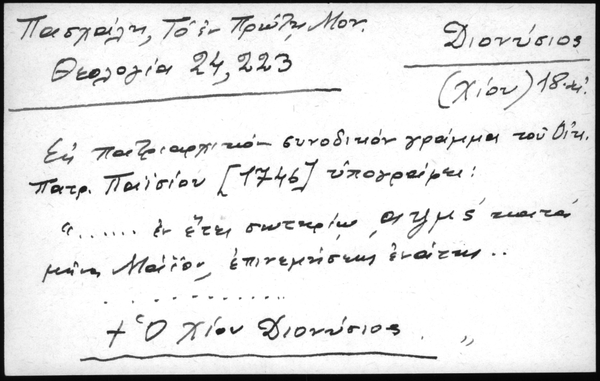 Πασχάλη, Τὸ ἐν Πρώτῃ Μον.
Θεολογία 24, 223
Διονύσιος
(Χίου) 18 αἰ.
Εἰς πατριαρχικὸν συνοδικὸν γράμμα τοῦ Οἰκ.
Πατρ. Παϊσίου [1746] ὑπογράφει:
"...... ἐν ἔτει σωτηρίῳ ͵αψμς΄ κατὰ
μῆνα Μάϊον, ἐπινεμήσεως ἐνάτης..
..............
+ Ὁ Χίου Διονύσιος. "